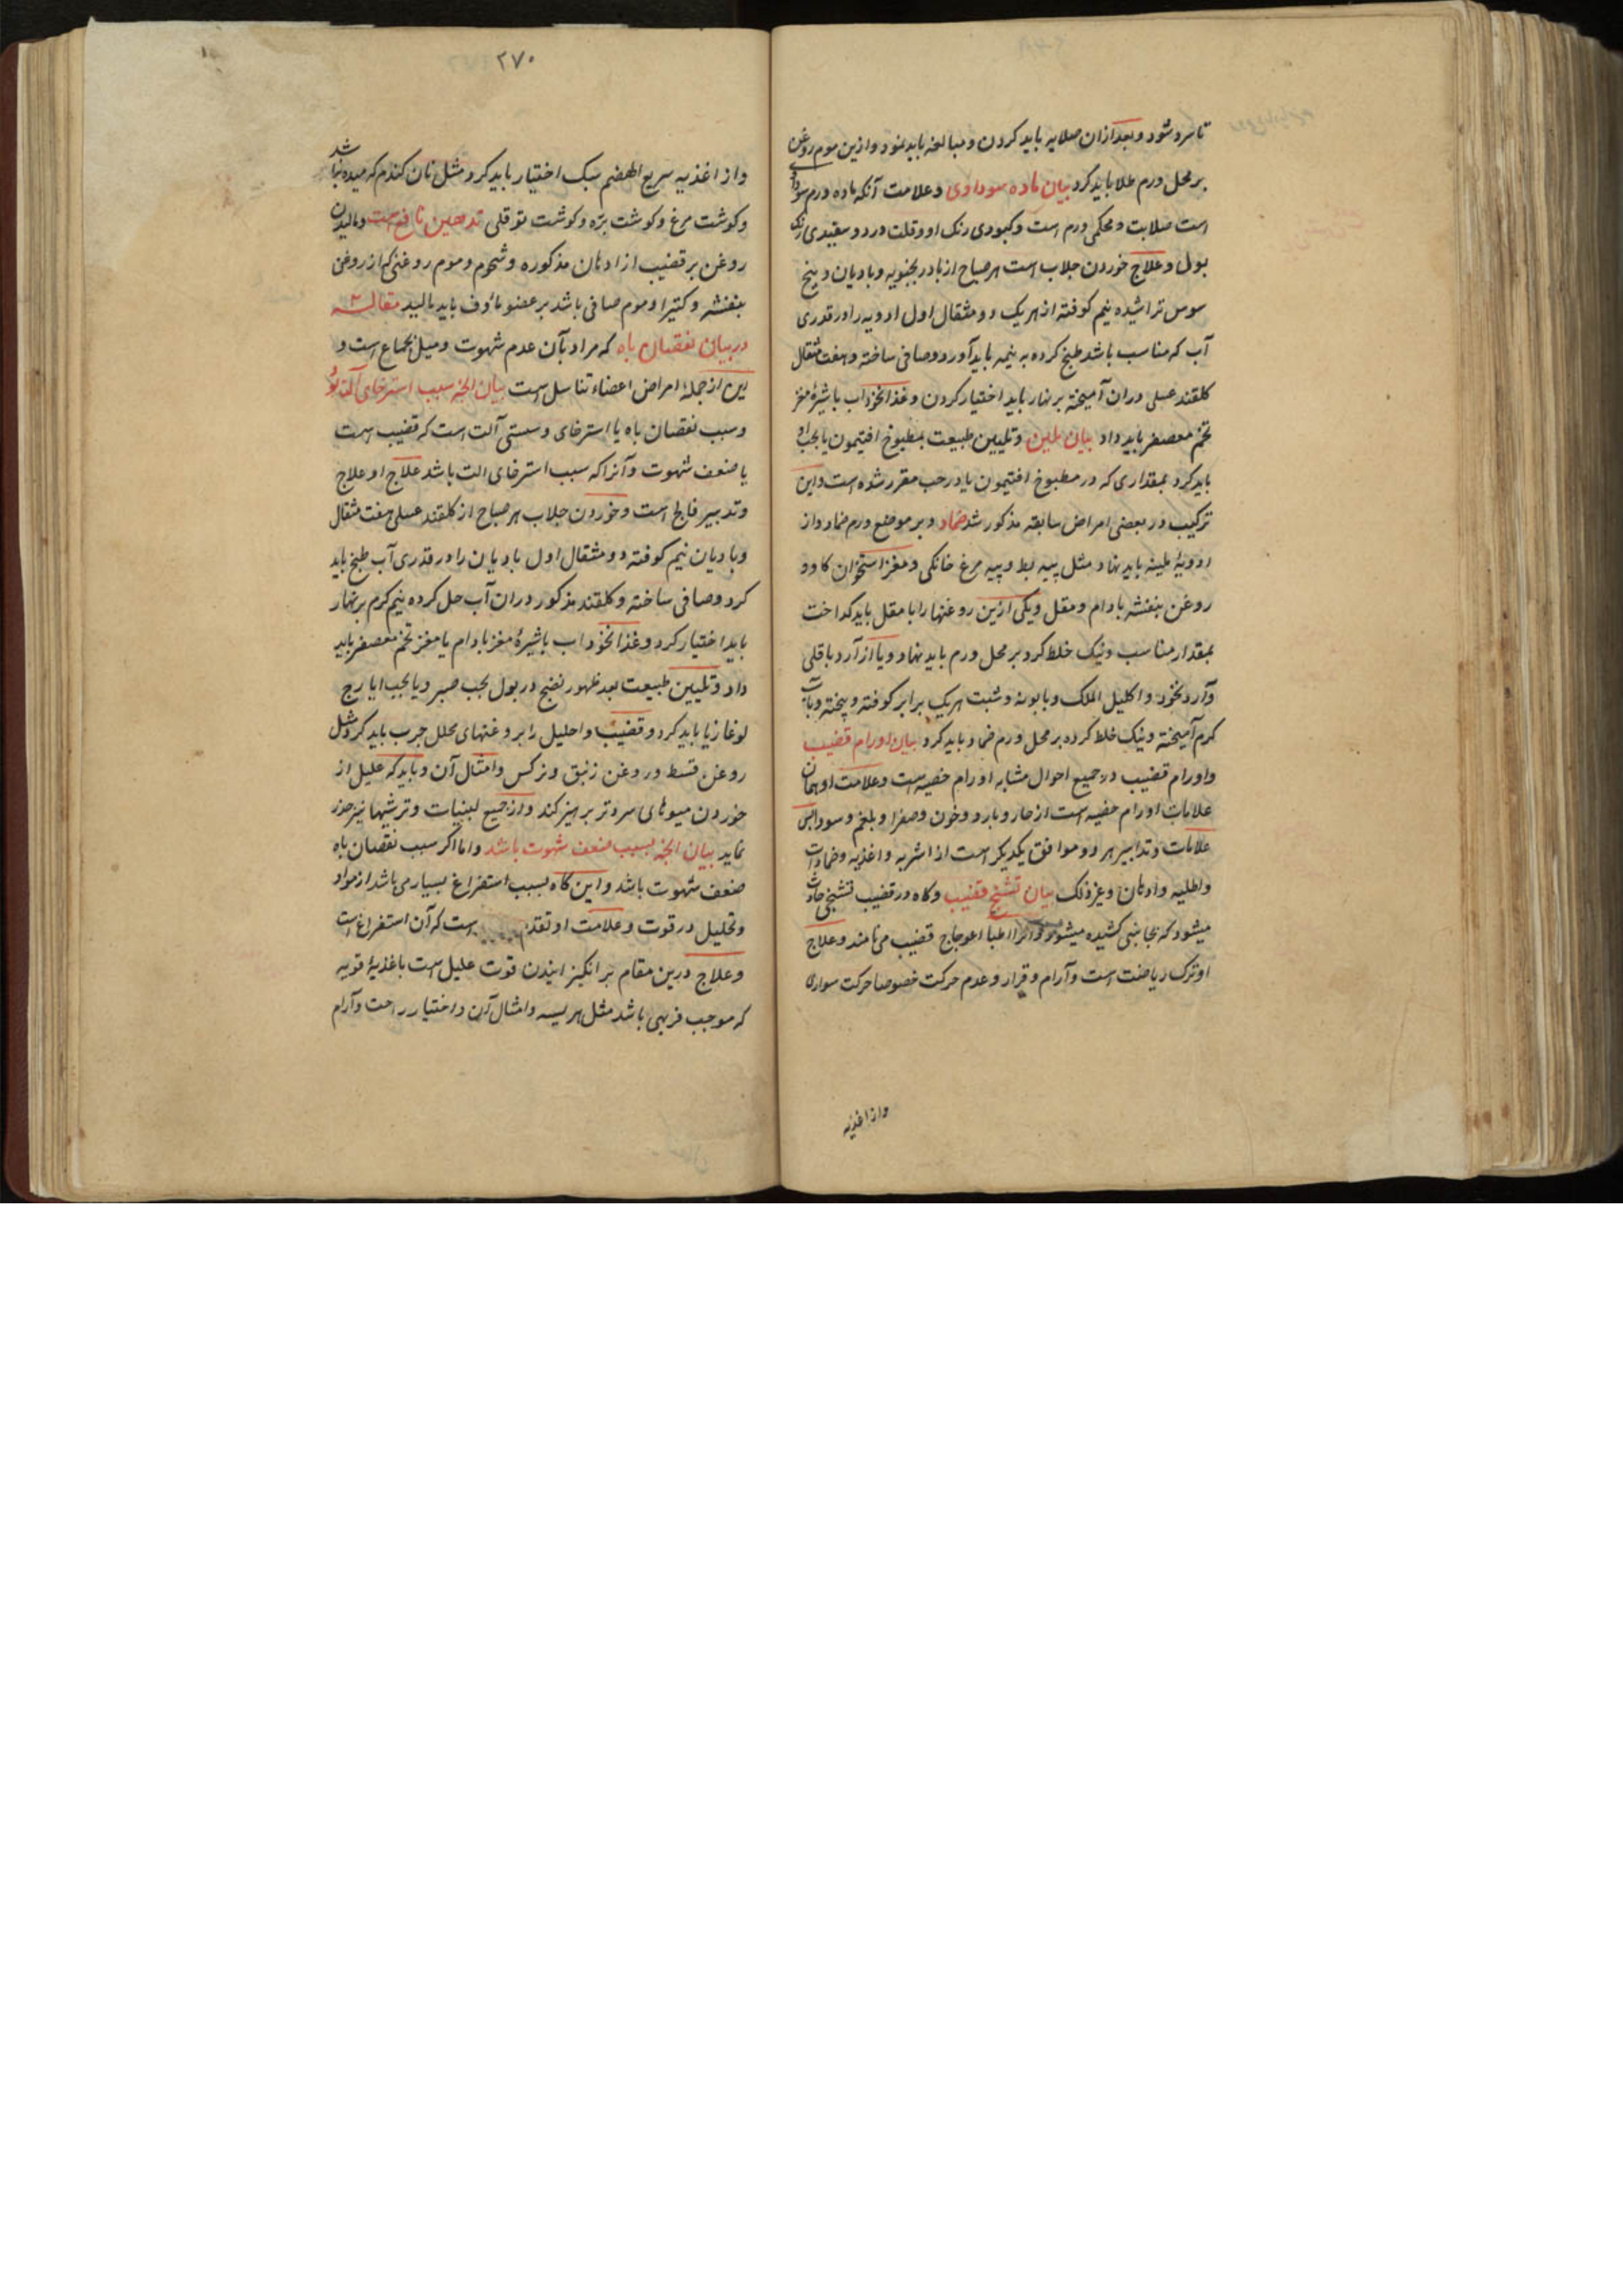 تا سرد شود و بعد ازان صلایه باید کردن و مبالغه باید نمود و ازین موم روغن
بر محل ورم طلا باید کرد بیان ماده سوداوی و علامت آنکه ماده ورم سوداوی
است صلابت و محکمی ورم است و کبودی رنک او و قلت درد و سفیدی رنک
بول و علاج خوردن جلاب است هر صباح از بادرنجبویه و بادیان و بیخ
سوس تراشیده نیم کوفته از هر یک دو مثقال اول ادویه را در قدری
آب که مناسب باشد طبخ کرده به نیمه باید آورد و صافی ساخته و هفت مثقال
کلقند عسلی دران آمیخته بر نهار باید اختیار کردن و غذا نخوداب با شیرهٔ مغز
تخم معصفر باید داد بیان ملین و تلیین طبیعت بمطبوخ افتیمون یا بحب او
باید کرد بمقداری که در مطبوخ افتیمون یا در حب مقرر شده است و این
ترکیب در بعضی امراض سابقه مذکور شد ضماد و بر موضع ورم ضماد از
ادویهٔ ملینه باید نهاد مثل پیه بط و پیه مرغ خانکی و مغز استخوان کاو و
روغن بنفشه بادام و مقل و یکی ازین روغنها را با مقل باید کداخت
بمقدار مناسب و نیک خلط کرد بر محل ورم باید نهاد و یا از آرد باقلی
و آرد نخود و اکلیل الملک و بابونه و شبت هر یک برابر کوفته و پخته و بآب
کرم آمیخته و نیک خلط کرده بر محل ورم ضماد باید کرد بیان اورام قضیب
و اورام قضیب در جمیع احوال مشابه اورام خصیه است و علامت او همان
علامات اورام خصیه است از حار و بارد و خون و صفرا و بلغم و سودا پس
علامات و تدابیر هر دو موافق یکدیکر است از اشربه و اغذیه و ضمادات
و اطلیه و ادهان و غیر ذلک بیان تشنج قضیب و کاه در قضیب تشنجی حادث
میشود که بجانبی کشیده میشود و آنرا اطبا اعوجاج قضیب می نامند و علاج
او ترک ریاضت است و آرام و قرار و عدم حرکت خصوصا حرکت سواری
و از اغذیه
۲۷۰
و از اغذیه سریع الهضم سبک اختیار باید کرد مثل نان کندم که میده نباشد
و کوشت مرغ و کوشت بره و کوشت توقلی تدهین نافع است و مالیدن
روغن بر قضیب از ادهان مذکوره و شحوم و موم روغنی که از روغن
بنفشه و کتیرا و موم صافی باشد بر عضو مأوف باید مالید مقاله
در بیان نقصان باه که مراد بآن عدم شهوت و میل بجماع است و
این از جملهٔ امراض اعضاء تناسل است بیان انچه سبب استرخای آلت بود
و سبب نقصان باه یا استرخای و سستی آلت است که قضیب است
یا ضعف شهوت و آنرا که سبب استرخای الت باشد علاج او علاج
و تدبیر فالج است و خوردن جلاب هر صباح از کلقند عسلی هفت مثقال
و بادیان نیم کوفته دو مثقال اول بادیان را در قدری آب طبخ باید
کرد و صافی ساخته و کلقند مذکور دران آب حل کرده نیم کرم بر نهار
باید اختیار کرد و غذا نخوداب با شیرهٔ مغز بادام یا مغز تخم معصفر باید
داد و تلیین طبیعت بعد ظهور نضج در بول بحب صبر و یا بحب ایارج
لوغازیا باید کرد و قضیب و احلیل را بروغنهای محلل چرب باید کرد مثل
روغن قسط و روغن زنبق و نرکس و امثال آن و باید که علیل از
خوردن میوهای سرد و تر پرهیز کند و از جمیع لبنیات و ترشیها نیز حذر
نماید بیان انچه بسبب ضعف شهوت باشد و اما اکر سبب نقصان باه
ضعف شهوت باشد و این کاه بسبب استفراغ بسیار می باشد از مواد
و تحلیل در قوت و علامت او تقدم است که آن استفراغ است
و علاج درین مقام بر انکیزانیدن قوت علیل است باغذیهٔ قویه
که موجب فربهی باشد مثل هریسه و امثال آن و اختیار راحت و آرام